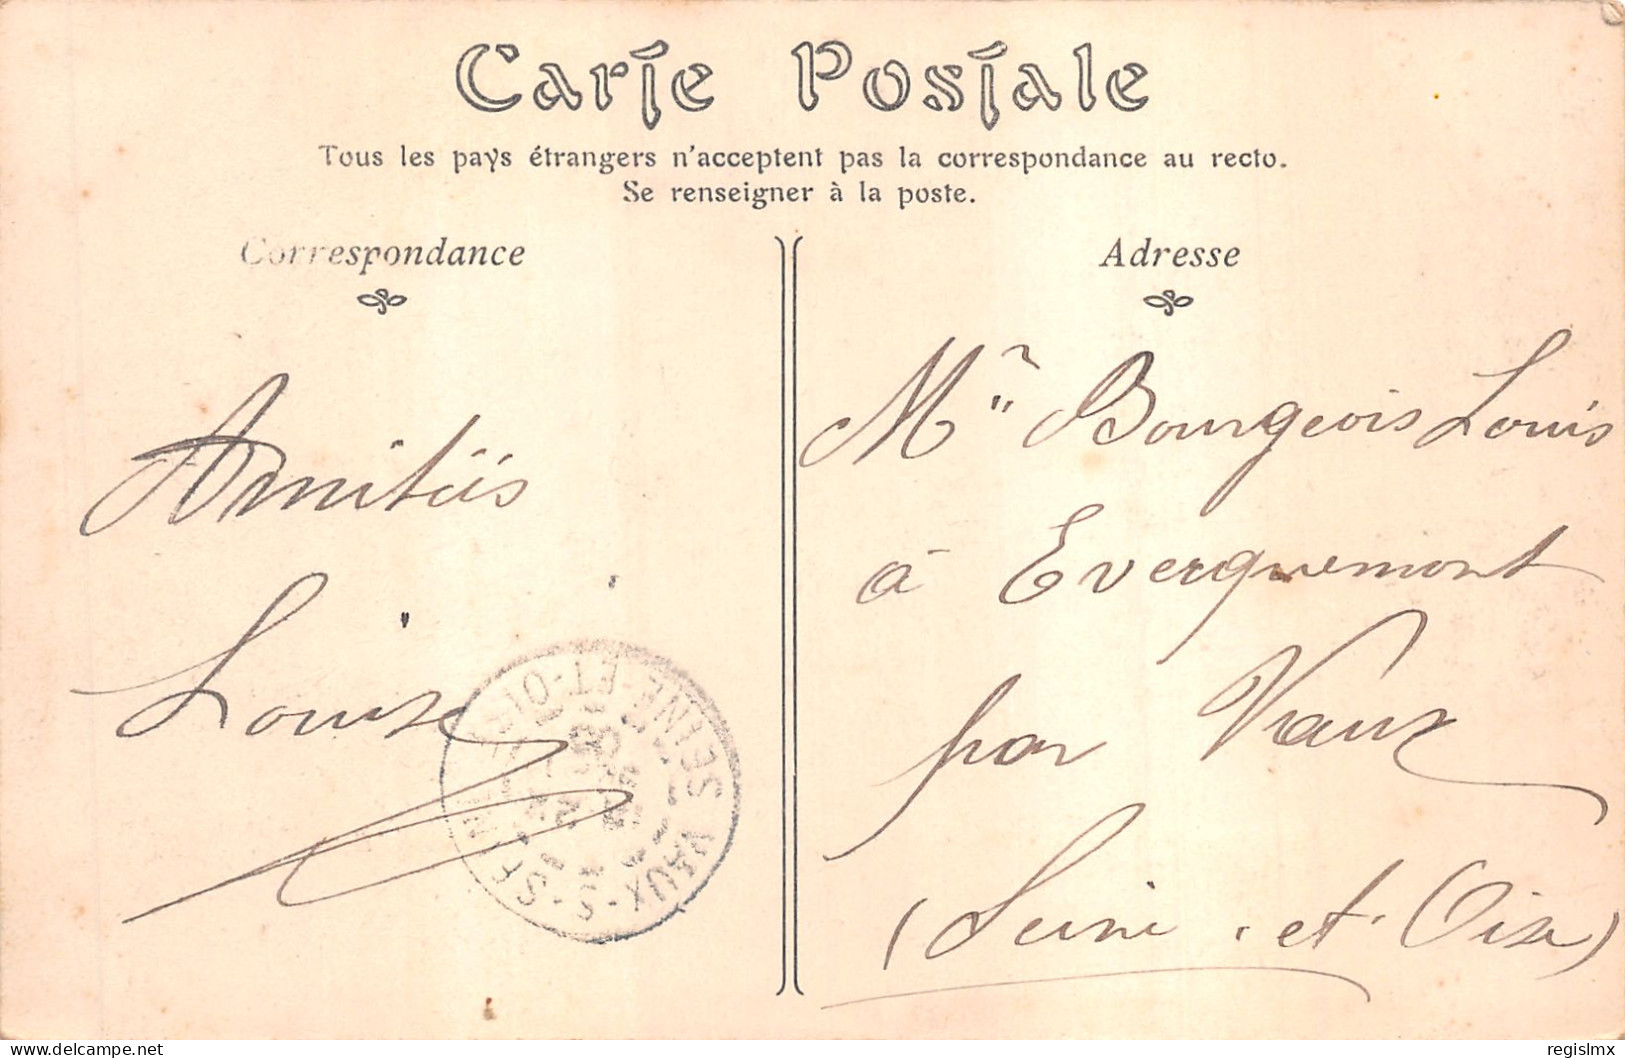 Carte Postale
Tous les pays étrangers n'acceptent pas la correspondance au recto.
Se renseigner à la poste.
Correspondance
Amitiés
Louise
VAUX-S-SEINE SEINE-ET-OISE
Adresse
Mr Bourgeois Louis
à Evergnemont
par Vaux
(Seine-et-Oise)
www.delcampe.net
regislmx